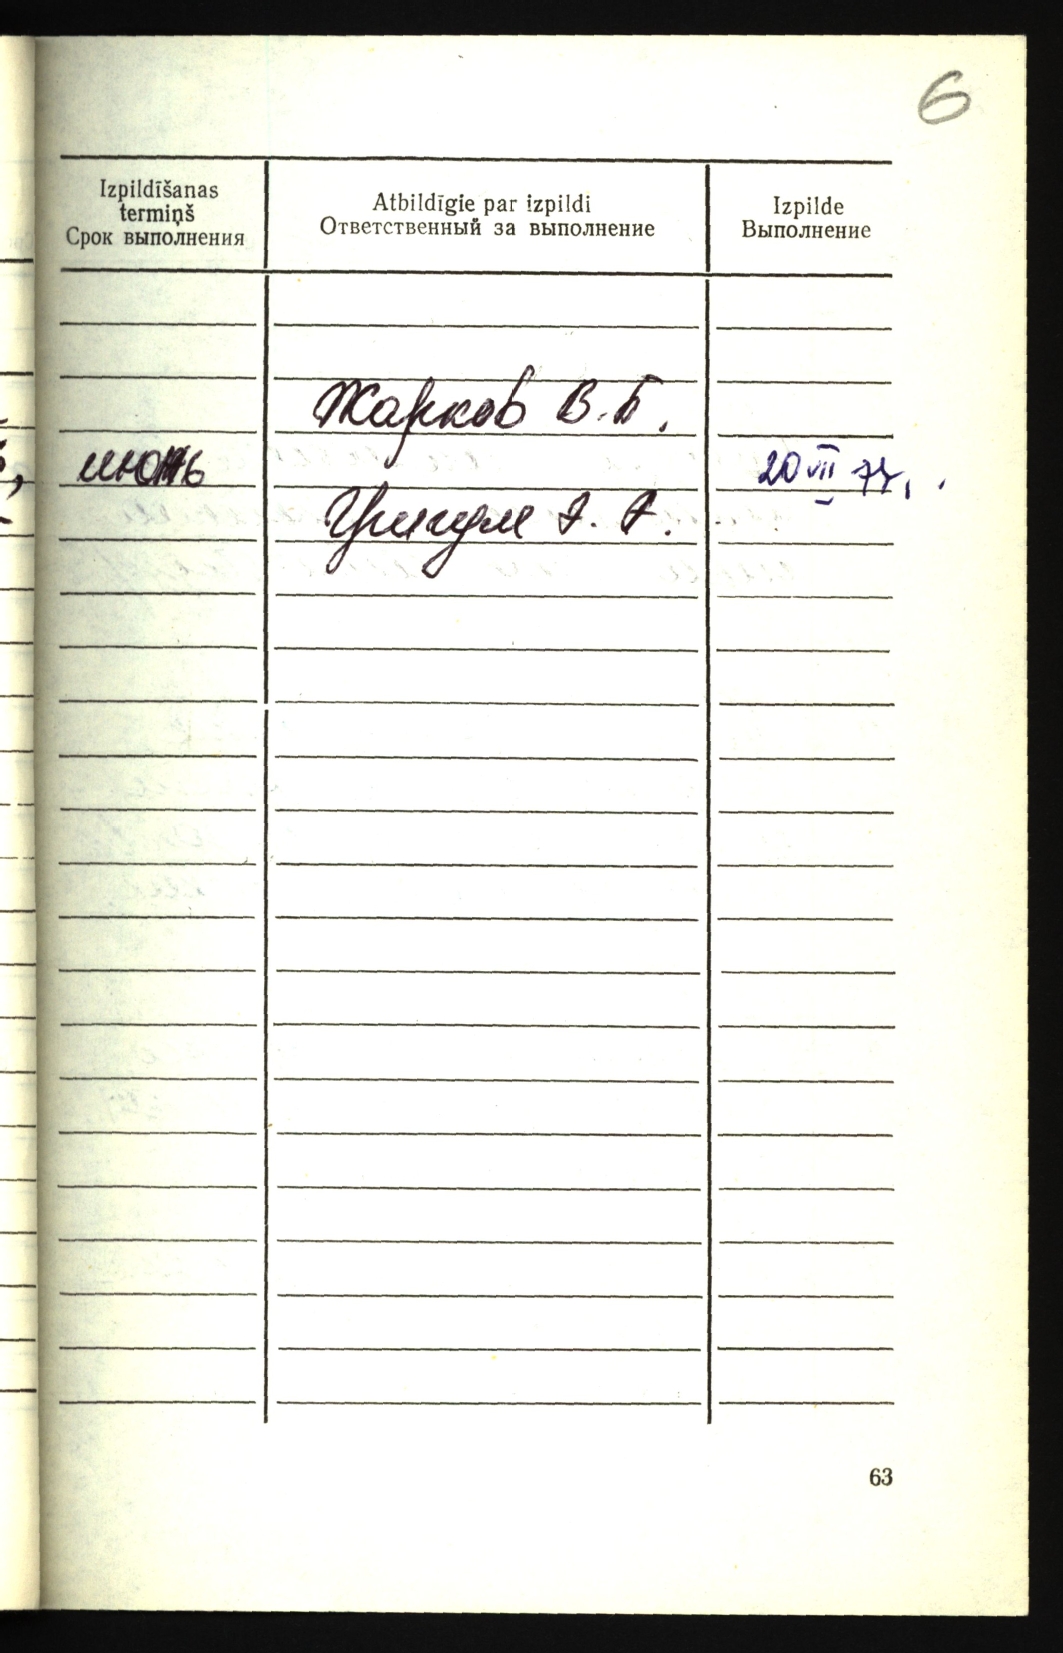 6
Izpildīšanas
termiņš
Срок выполнения
Atbildīgie par izpildi
Ответственный за выполнение
Izpilde
Выполнение
Жарков В. Б.
июнь
20 VII 77,
А. А.
63